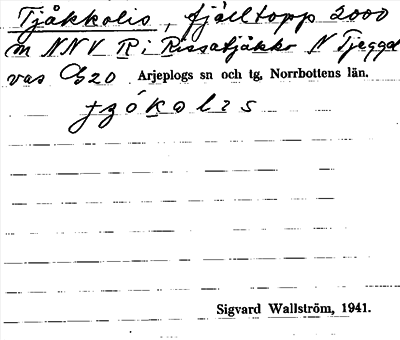 Tjåkkolis, fjälltopp 2000
m NNV R i Rissatjåkko N Tjeggel
vas G20 Arjeplogs sn och tg, Norrbottens län.
Sigvard Wallström, 1941.